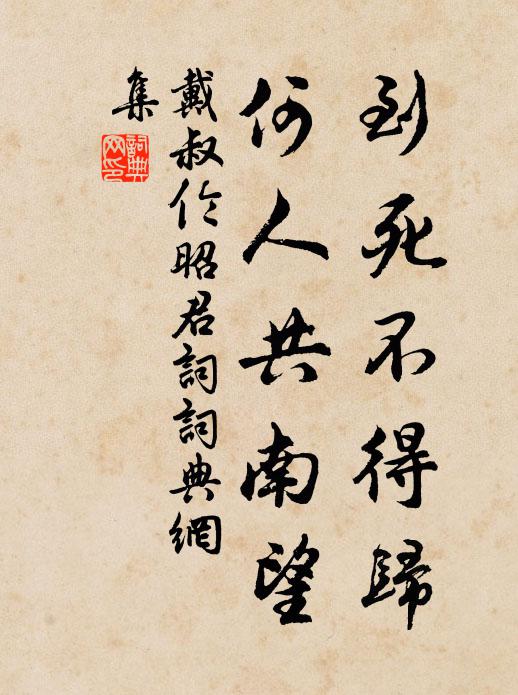 到死不得歸
何人共南望
戴叔伦昭君詞詞典網
集
詞典
网印